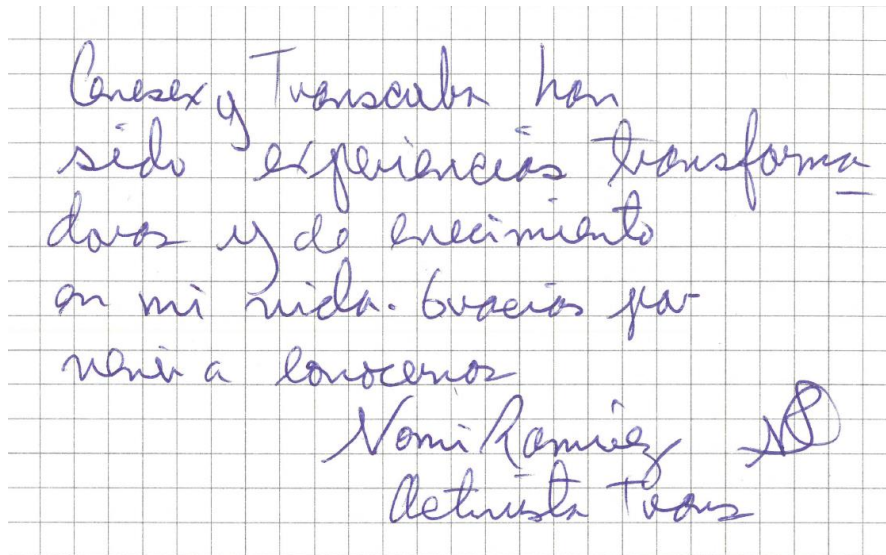 Cenesex y Transcuba han
sido experiencias transforma-
doras y de crecimiento
en mi vida. Gracias por
venir a conocernos
Nomi Ramirez
Activista Trans